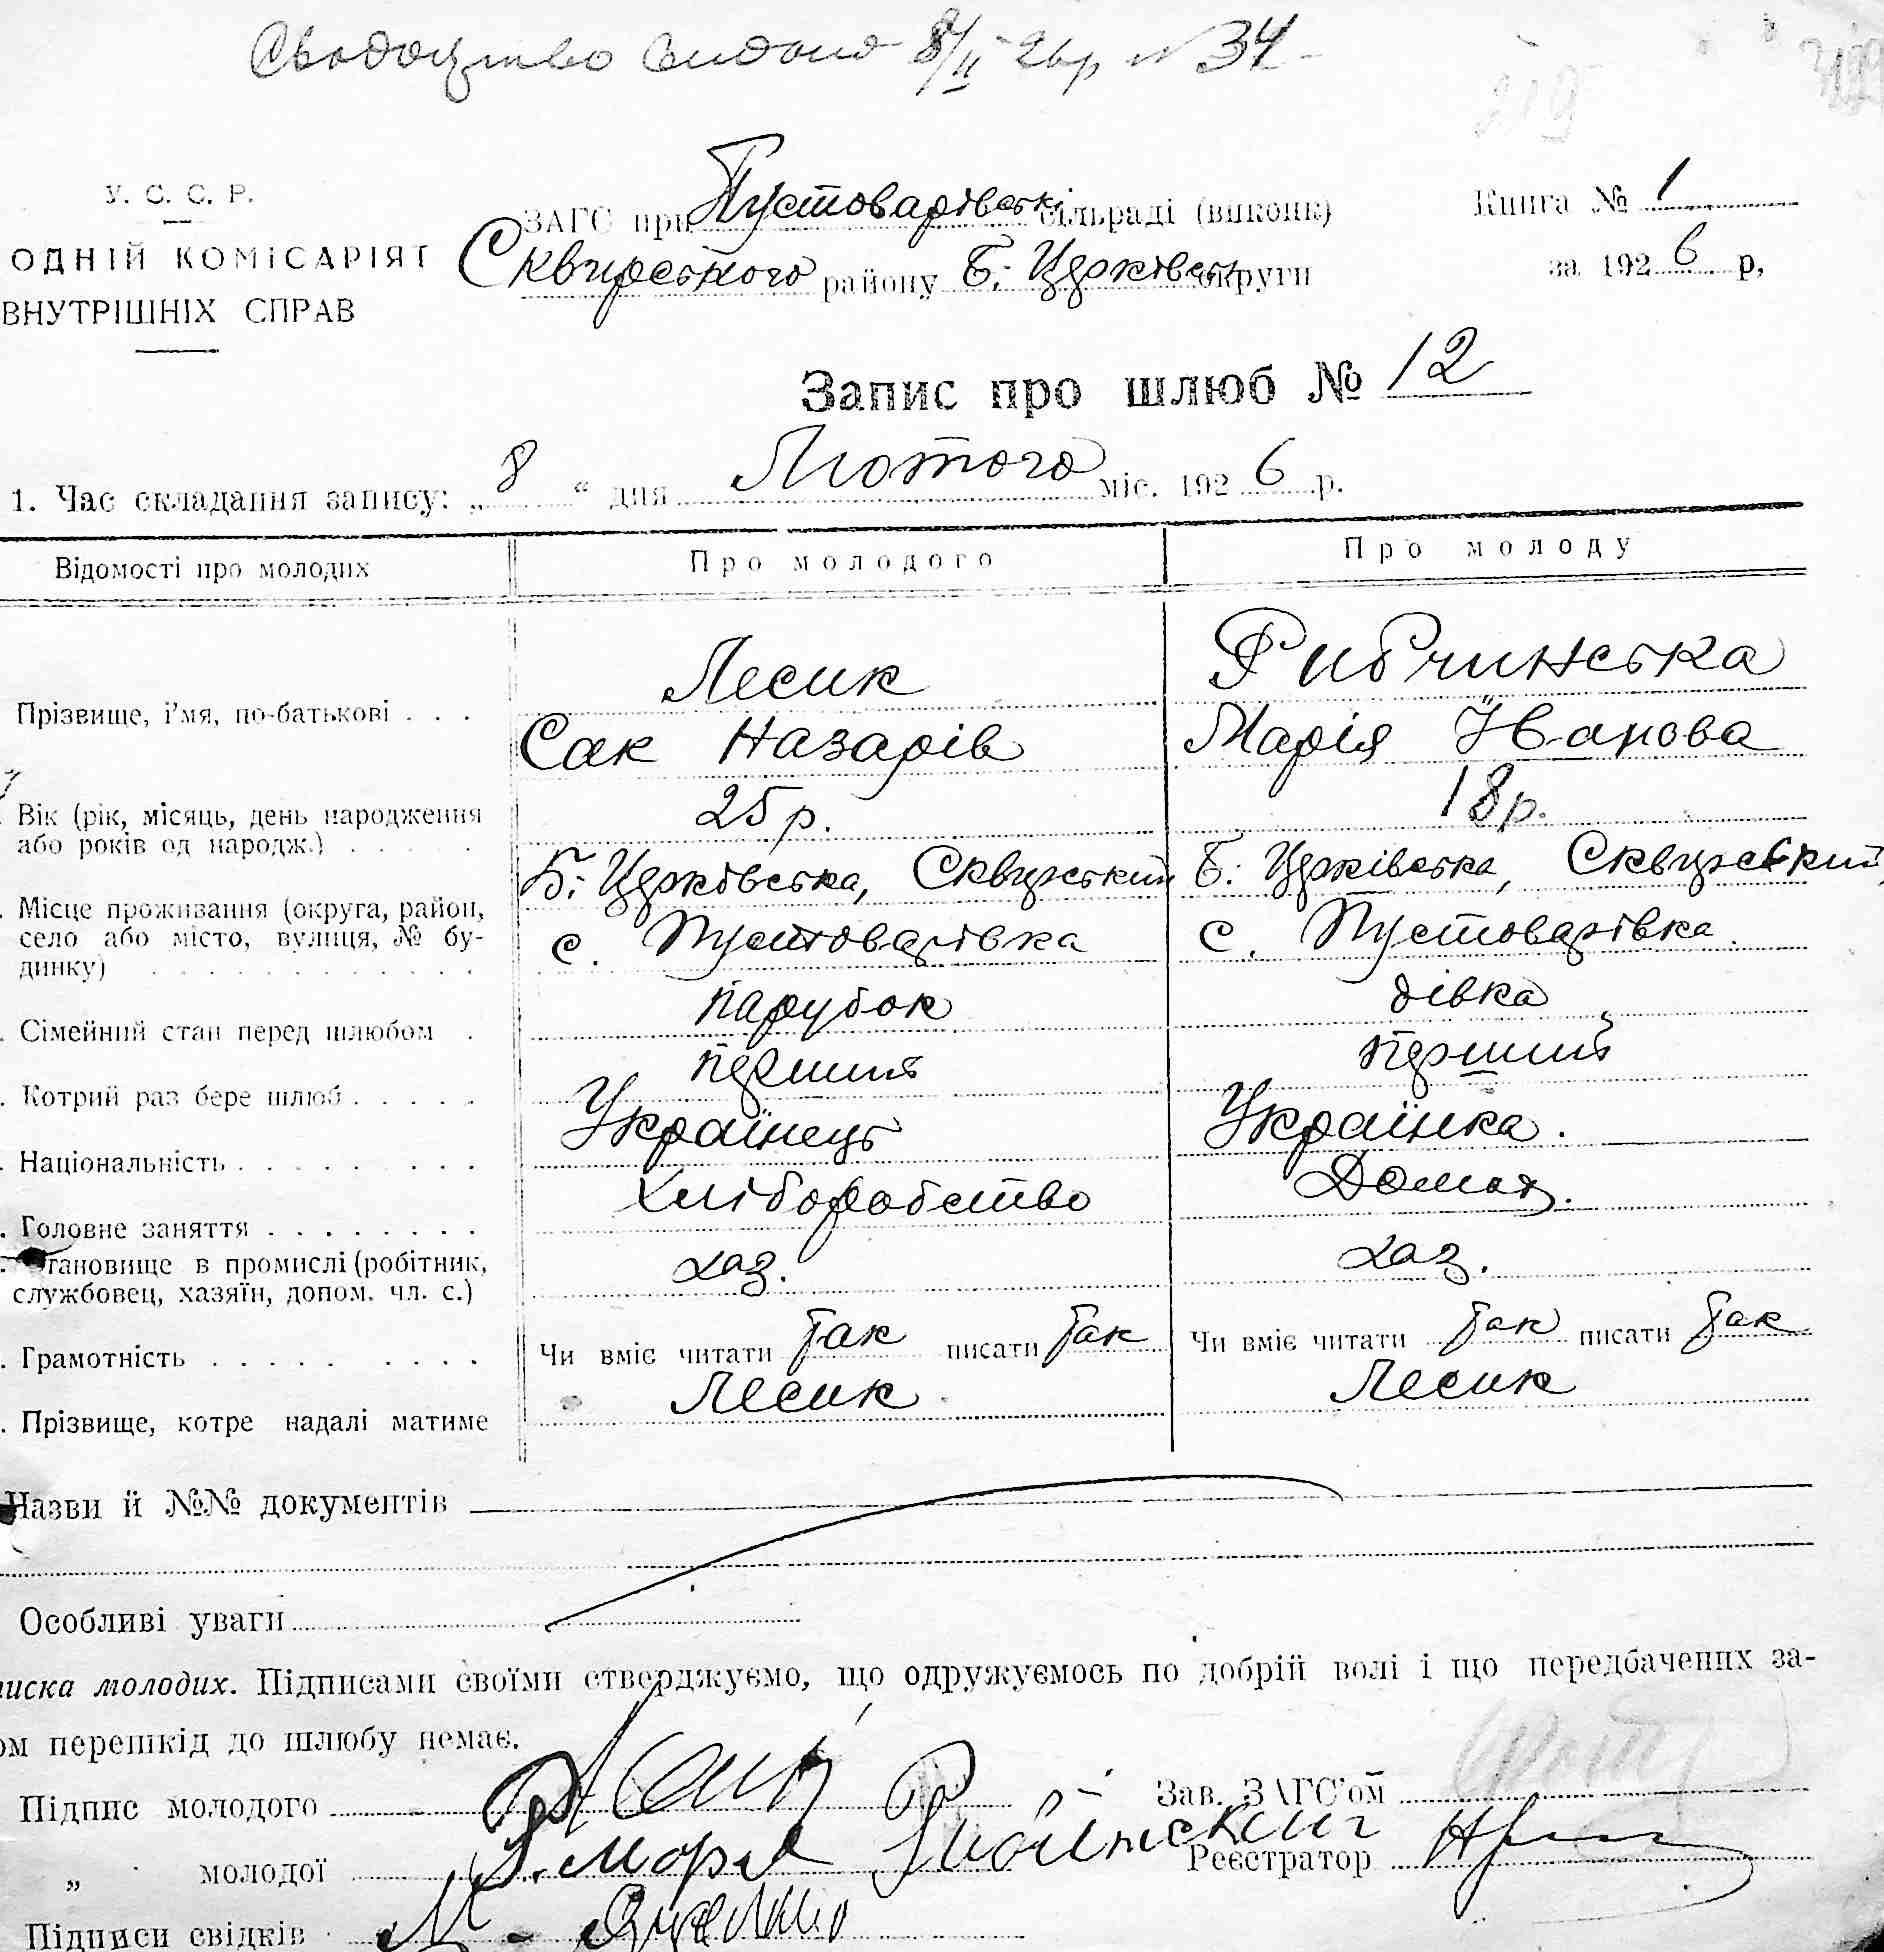 Свадоцтво видано 8/II 26 р. № 34
219
У. С. С. Р.
ОДНІЙ КОМІСАРІЯТ
ВНУТРІШНІХ СПРАВ
ЗАГС при Пустоварівські сільраді (виконк)
Сквирського району Б. Церківськ округи
Книга № 1
за 1926 р,
Запис про шлюб № 12
1. Час складання запису: „ 8 “ дня Лютого міс. 1926 р.
Відомості про молодих Про молодого Про молоду
Прізвище, і'мя, по-батькові . . . Лесик Рибчинська
Сак Назарів Марія Іванова
Вік (рік, місяць, день народження або років од народж.) . . . . . 25 р. 18 р.
Місце проживання (округа, район, Б. Церківська, Сквирський Б. Церківська, Сквирський,
село або місто, вулиця, № бу- с. Пустоварівка с. Пустоварівка.
динку) . . . . . . . . . . .
Сімейний стан перед шлюбом . парубок дівка
Котрий раз бере шлюб . . . . . перший перший
Національність . . . . . . . . . Українець Українка.
Головне заняття . . . . . . . . Хліборобство Домаш.
тановище в промислі (робітник, хаз. хаз.
службовец, хазяїн, допом. чл. с.)
Грамотність . . . . . . . . . . Чи вміє читати так писати так Чи вміє читати так писати так
Прізвище, котре надалі матиме Лесик Лесик
Назви й №№ документів
Особливі уваги
иска молодих. Підписами своїми стверджуємо, що одружуємось по добрій волі і що передбачених за-
ом перешкід до шлюбу немає.
Підпис молодого Зав. ЗАГС'ом
„ молодої Реєстратор
Підписи свідків